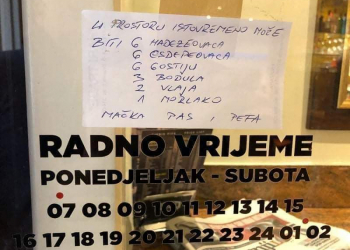 U PROSTORU ISTOVREMENO MOŽE
BITI 6 HADEZEOVACA
6 ESDEPEOVACA
6 GOSTIJU
3 BODULA
2 VLAJA
1 MORLAKO
MAČKA PAS, PEPA
RADNO VRIJEME
PONEDJELJAK - SUBOTA
07 08 09 10 11 12 13 14 15
16 17 18 19 20 21 22 23 24 01 02